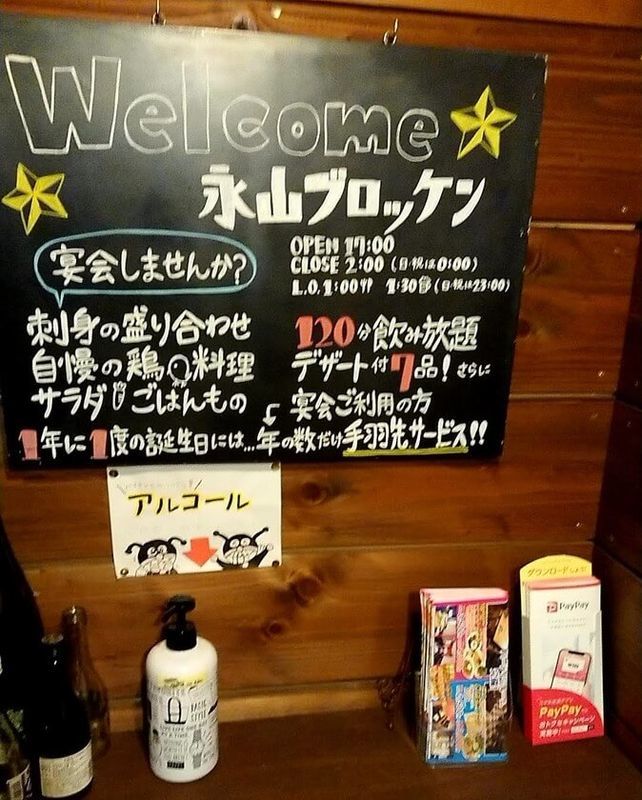 Welcome
永山ブロッケン
OPEN 17:00
CLOSE 2:00 (日・祝は0:00)
L.O. 1:00 1:30 (日・祝は23:00)
宴会しませんか?
刺身の盛り合わせ
自慢の鶏料理
サラダ ごはんもの
120分飲み放題
デザート付7品! さらに
宴会ご利用の方
1年に1度の誕生日には…年の数だけ手羽先サービス!!
アルコール
BASIC
STYLE
ダウンロードしよう!
PayPay
PayPay
おトクなキャンペーン
実施中!